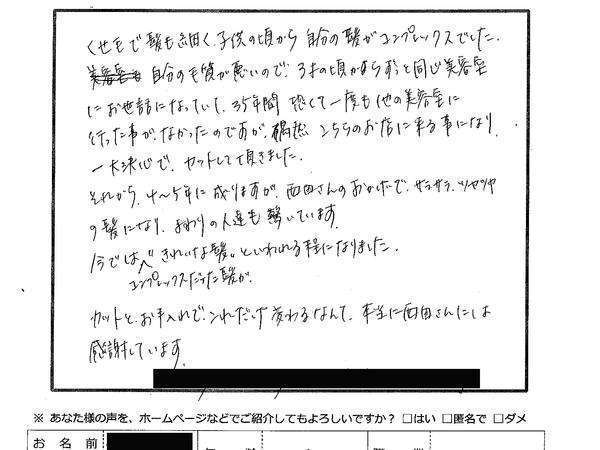 くせ毛で髪も細く、子供の頃から自分の髪がコンプレックスでした。
自分の毛質が悪いので、3才の頃からずっと同じ美容室
にお世話になっていて、35年間 恐くて一度も他の美容室に
行った事がなかったのですが、偶然 こちらのお店に来る事になり、
一大決心で、カットして頂きました。
それから、4〜5年に成りますが、西田さんのおかげで、サラサラ、ツヤツヤ
の髪になり、まわりの人達も驚いています。
今では "きれいな髪" といわれる程になりました。
コンプレックスだった髪が、
カットと、お手入れで、これだけ変わるなんて、本当に西田さんには
感謝しています。
※ あなた様の声を、ホームページなどでご紹介してもよろしいですか? □はい □匿名で □ダメ
お 名 前